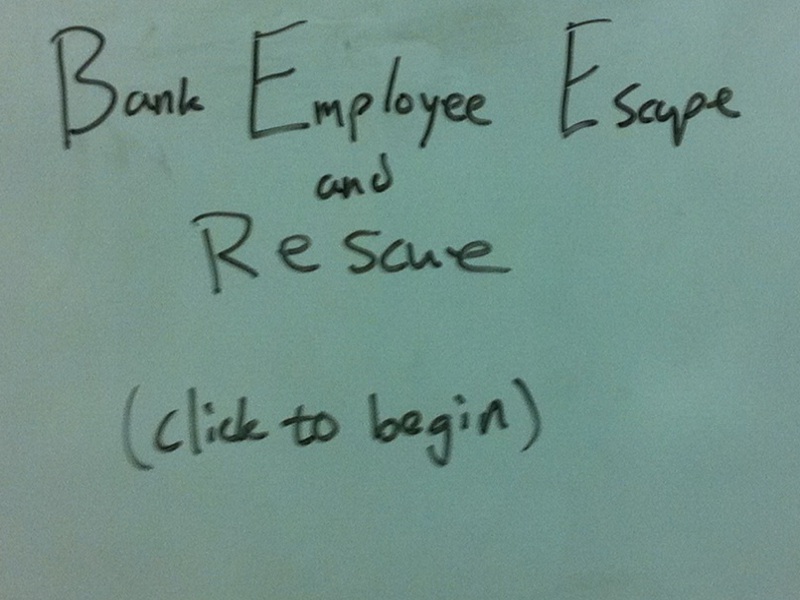 Bank Employee Escape
and
Rescue
(click to begin)